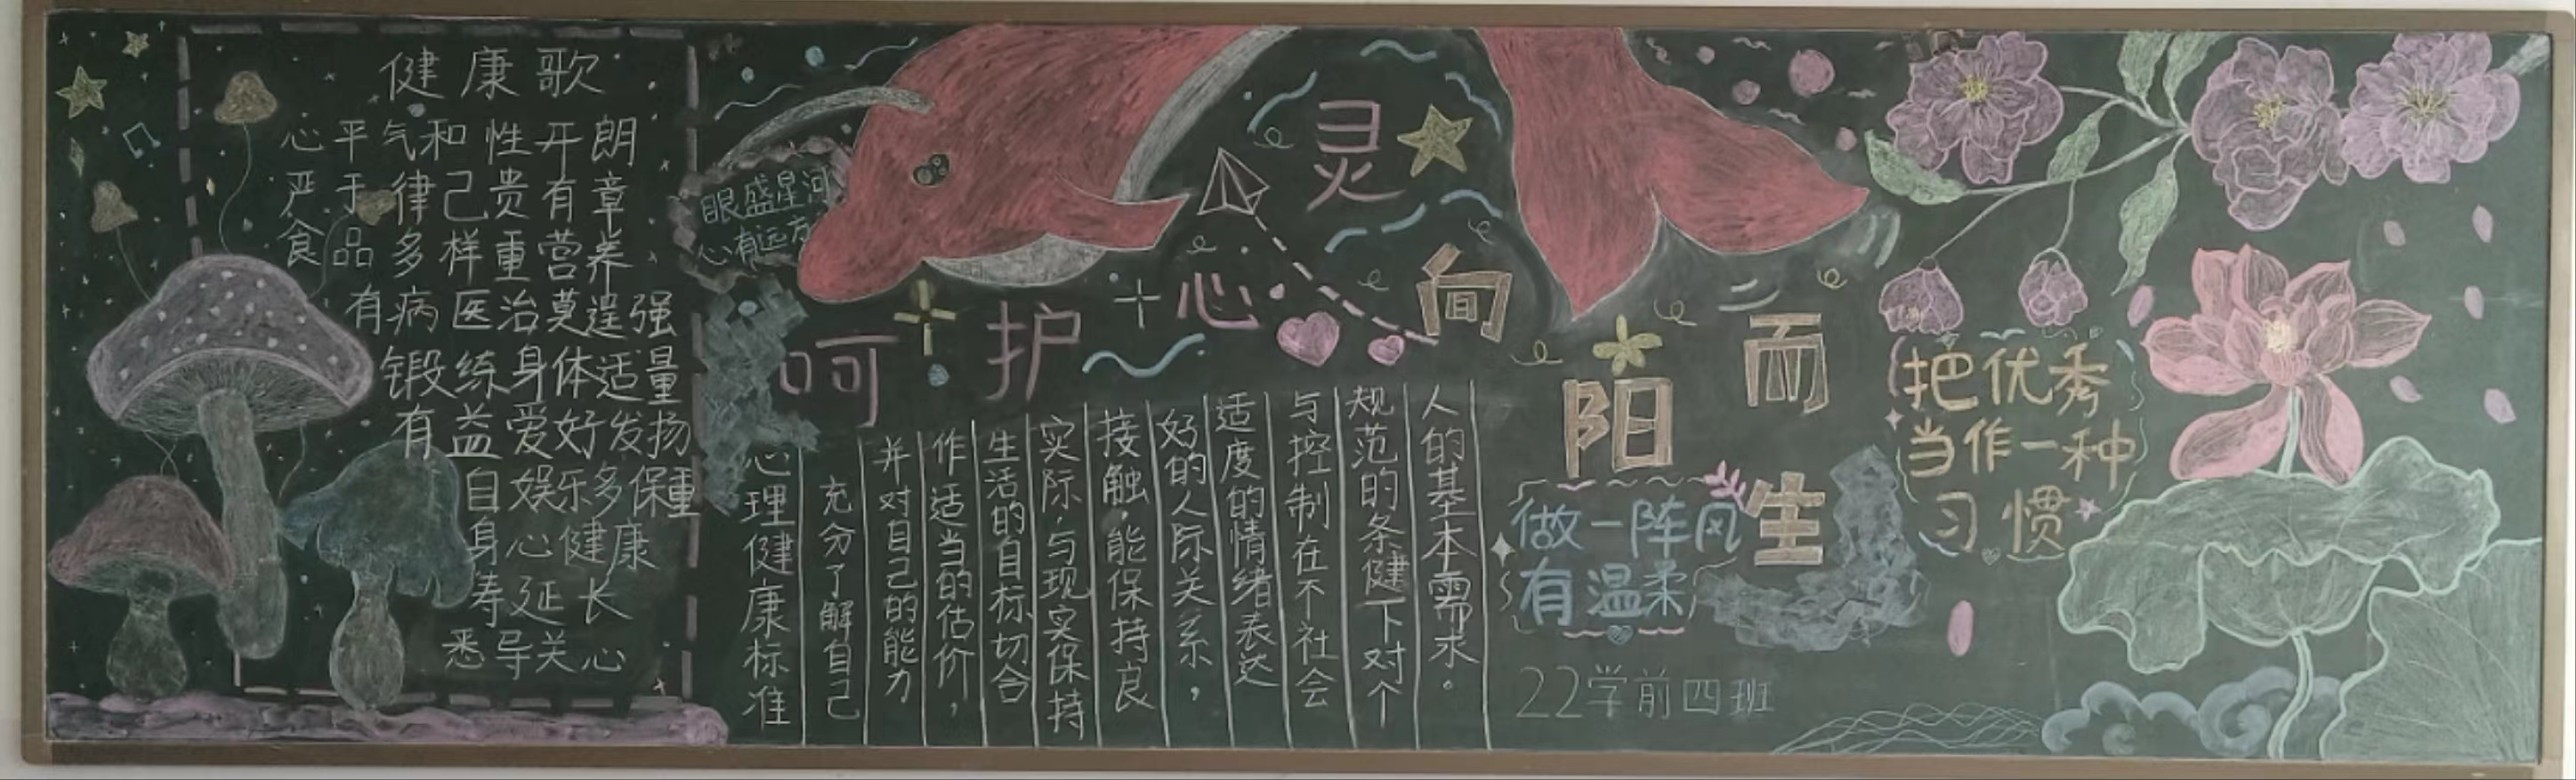 健康歌
心平气和性开朗
严于律己贵有章
食品多样重营养
有病医治莫逞强
锻练身体适量
有益爱好发扬
自娱乐多保重
身心健康
寿延长
悉导关心
眼盛星河
心有远方
呵护心灵
向阳而生
心理健康标准
充分了解自己
并对自己的能力
作适当的估价，
生活的目标切合
实际，与现实保持
接触，能保持良
好的人际关系，
适度的情绪表达
与控制在不社会
规范的条健下对个
人的基本需求。
做一阵风
有温柔
把优秀
当作一种
习惯
22学前四班